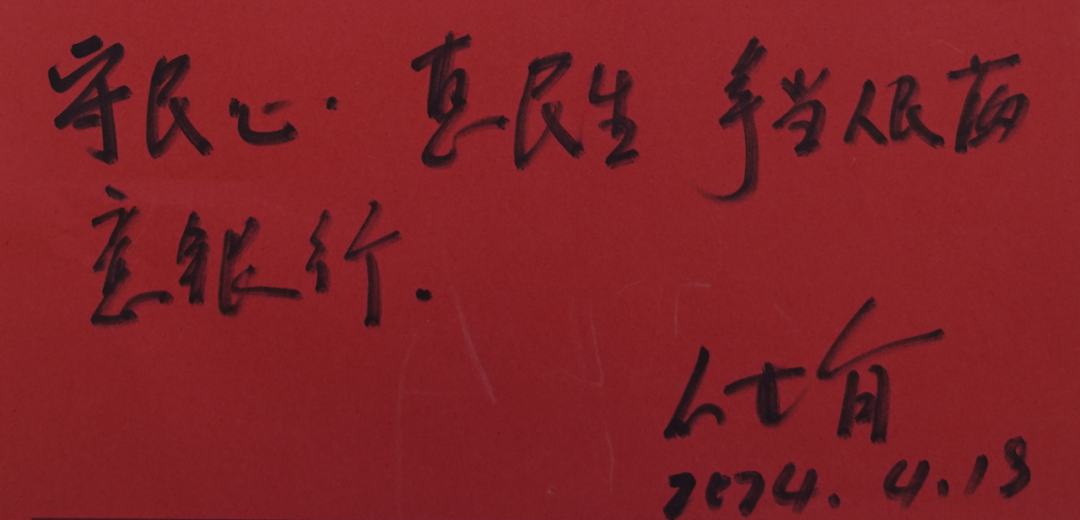 守民心·惠民生 争当人民满
意银行.
2024.4.13